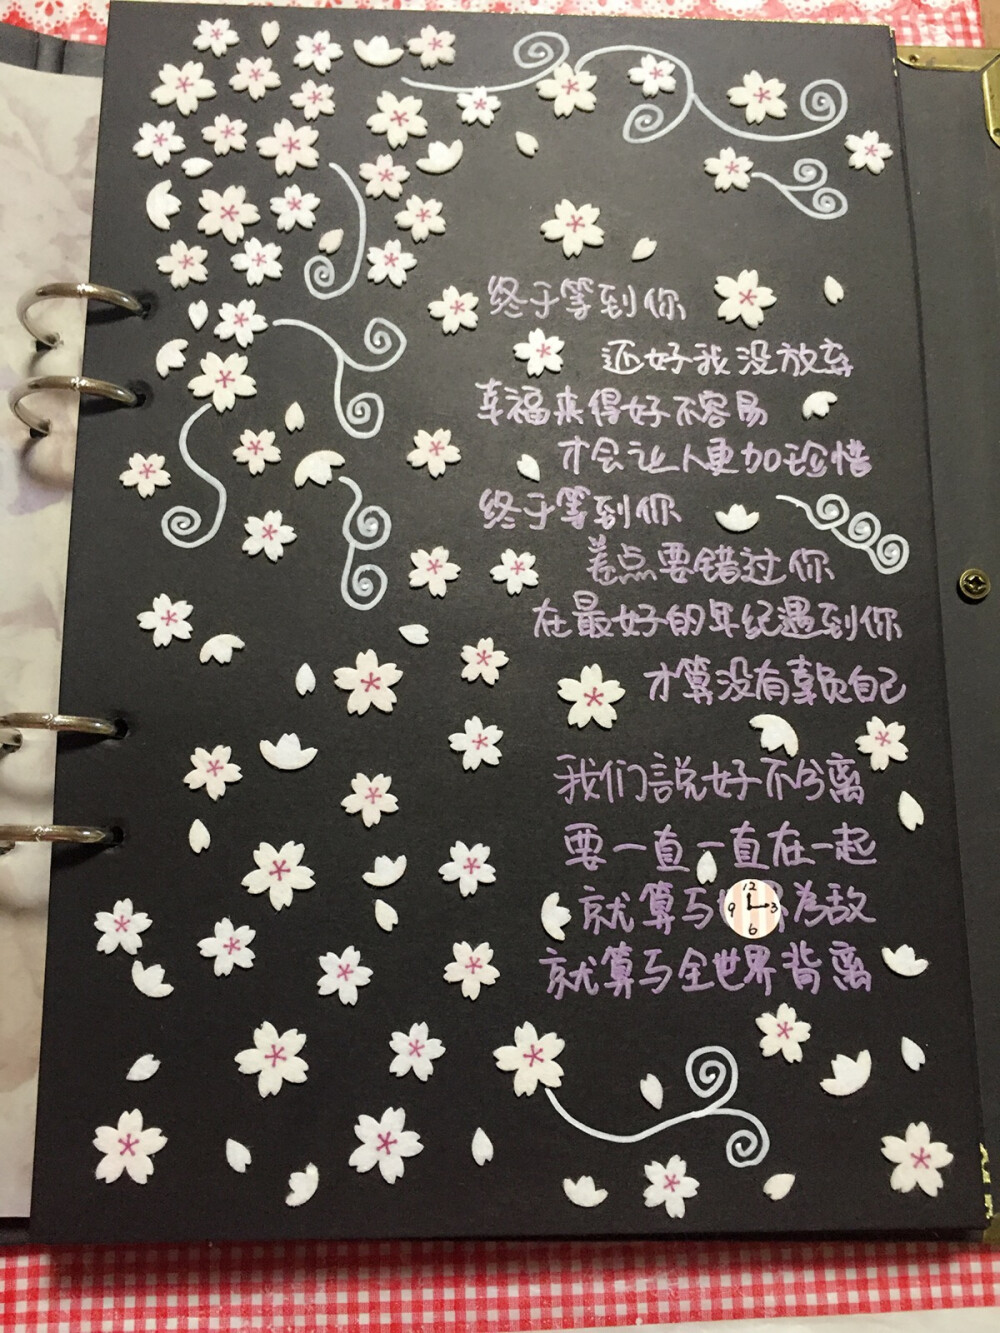 终于等到你
还好我没放弃
幸福来得好不容易
才会让人更加珍惜
终于等到你
差点要错过你
在最好的年纪遇到你
才算没有辜负自己
我们說好不分离
要一直一直在一起
就算与 界為敌
12
9 3
6
就算与全世界背离